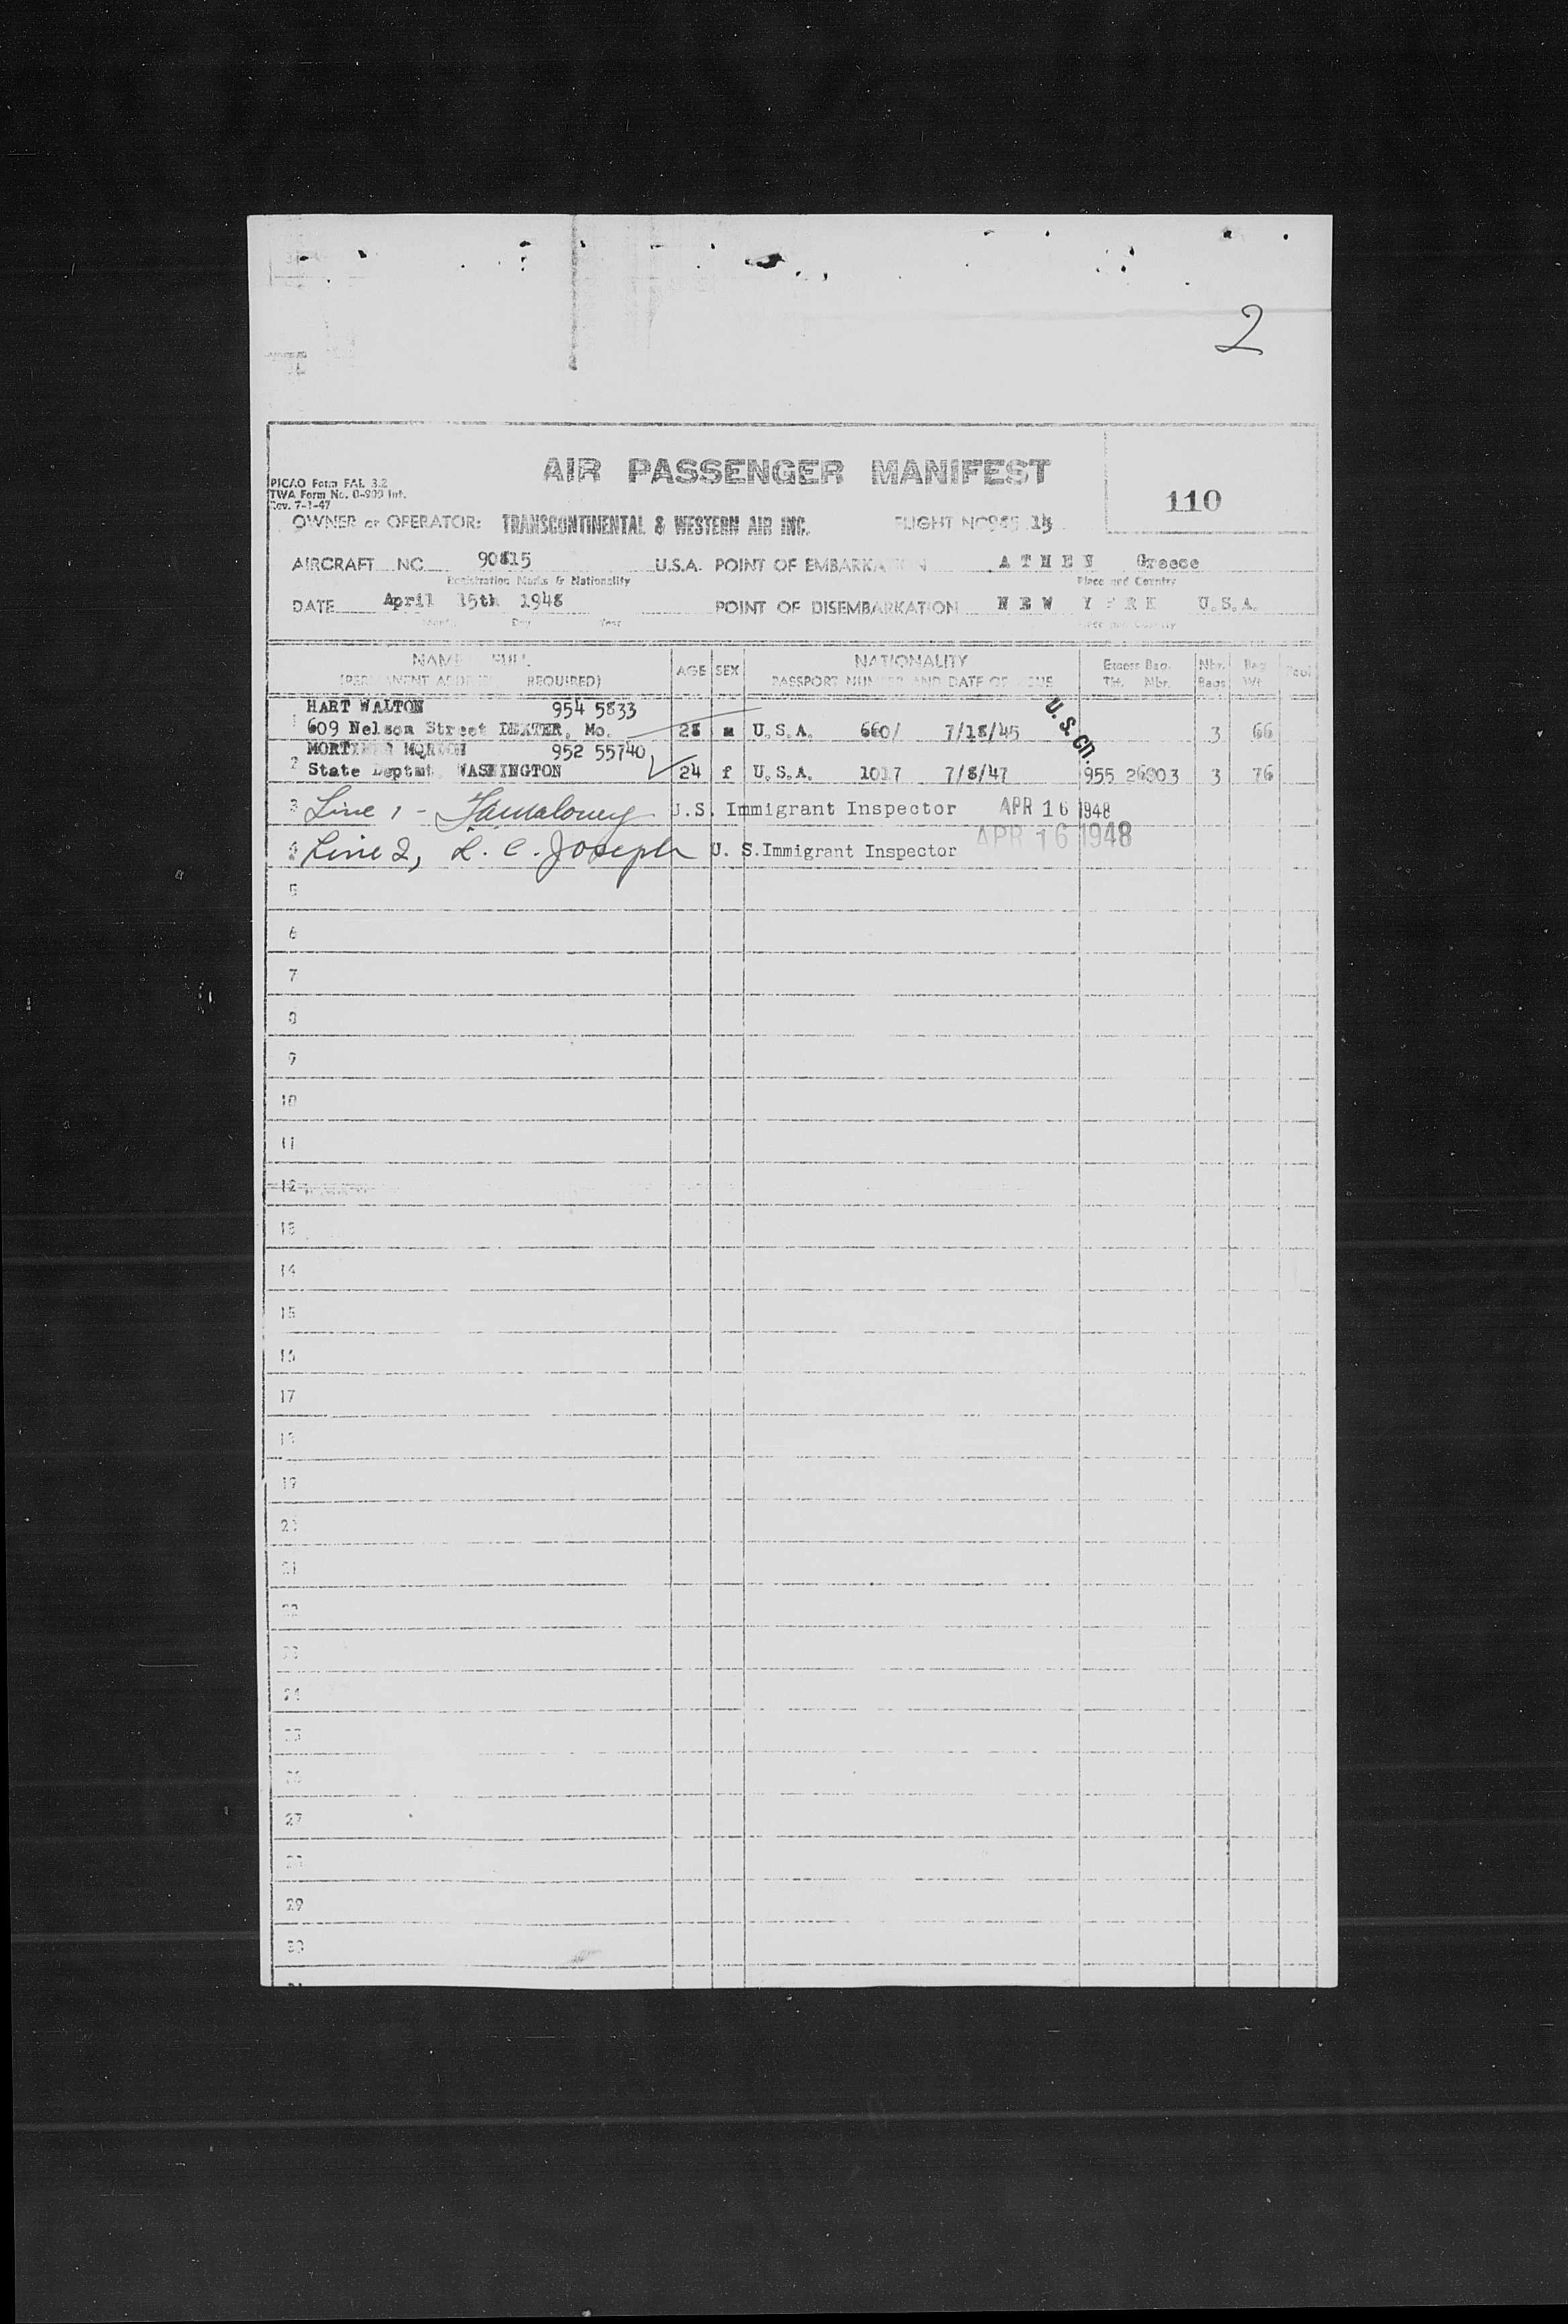 2
AIR PASSENGER MANIFEST
PICAO Form FAL 3.2
TWA Form No. 0-900 Int.
Rev. 7-1-47
110
OWNER or OPERATOR: TRANSCONTINENTAL & WESTERN AIR INC. FLIGHT NO 15
AIRCRAFT NC U.S.A. POINT OF EMBARKATION ATHEN Greece
Registration Marks & Nationality Place and Country
DATE April 15th 1948 POINT OF DISEMBARKATION NEW YORK U.S.A.
Month Day Year Place and Country
NAME FULL AGE SEX NATIONALITY Excess Bag. Nbr. Bag
(PERMANENT ADDRESS REQUIRED) PASSPORT NUMBER AND DATE OF ISSUE Tkt. Nbr. Bags Wt.
HART WALTON 954 5833 U.S. Cn.
1 609 Nelson Street DEXTER, Mo. 28 m U.S.A. 660/ 7/18/45 3 66
MORTIMER 952 55740
2 State Deptmt WASHINGTON 24 f U.S.A. 1017 7/8/47 955 3 76
3 Line 1 - U.S. Immigrant Inspector APR 16 1948
4 Line 2, L. C. Joseph U. S. Immigrant Inspector APR 16 1948
5
6
7
8
9
10
11
12
13
14
15
16
17
18
19
20
21
22
23
24
25
26
27
28
29
30